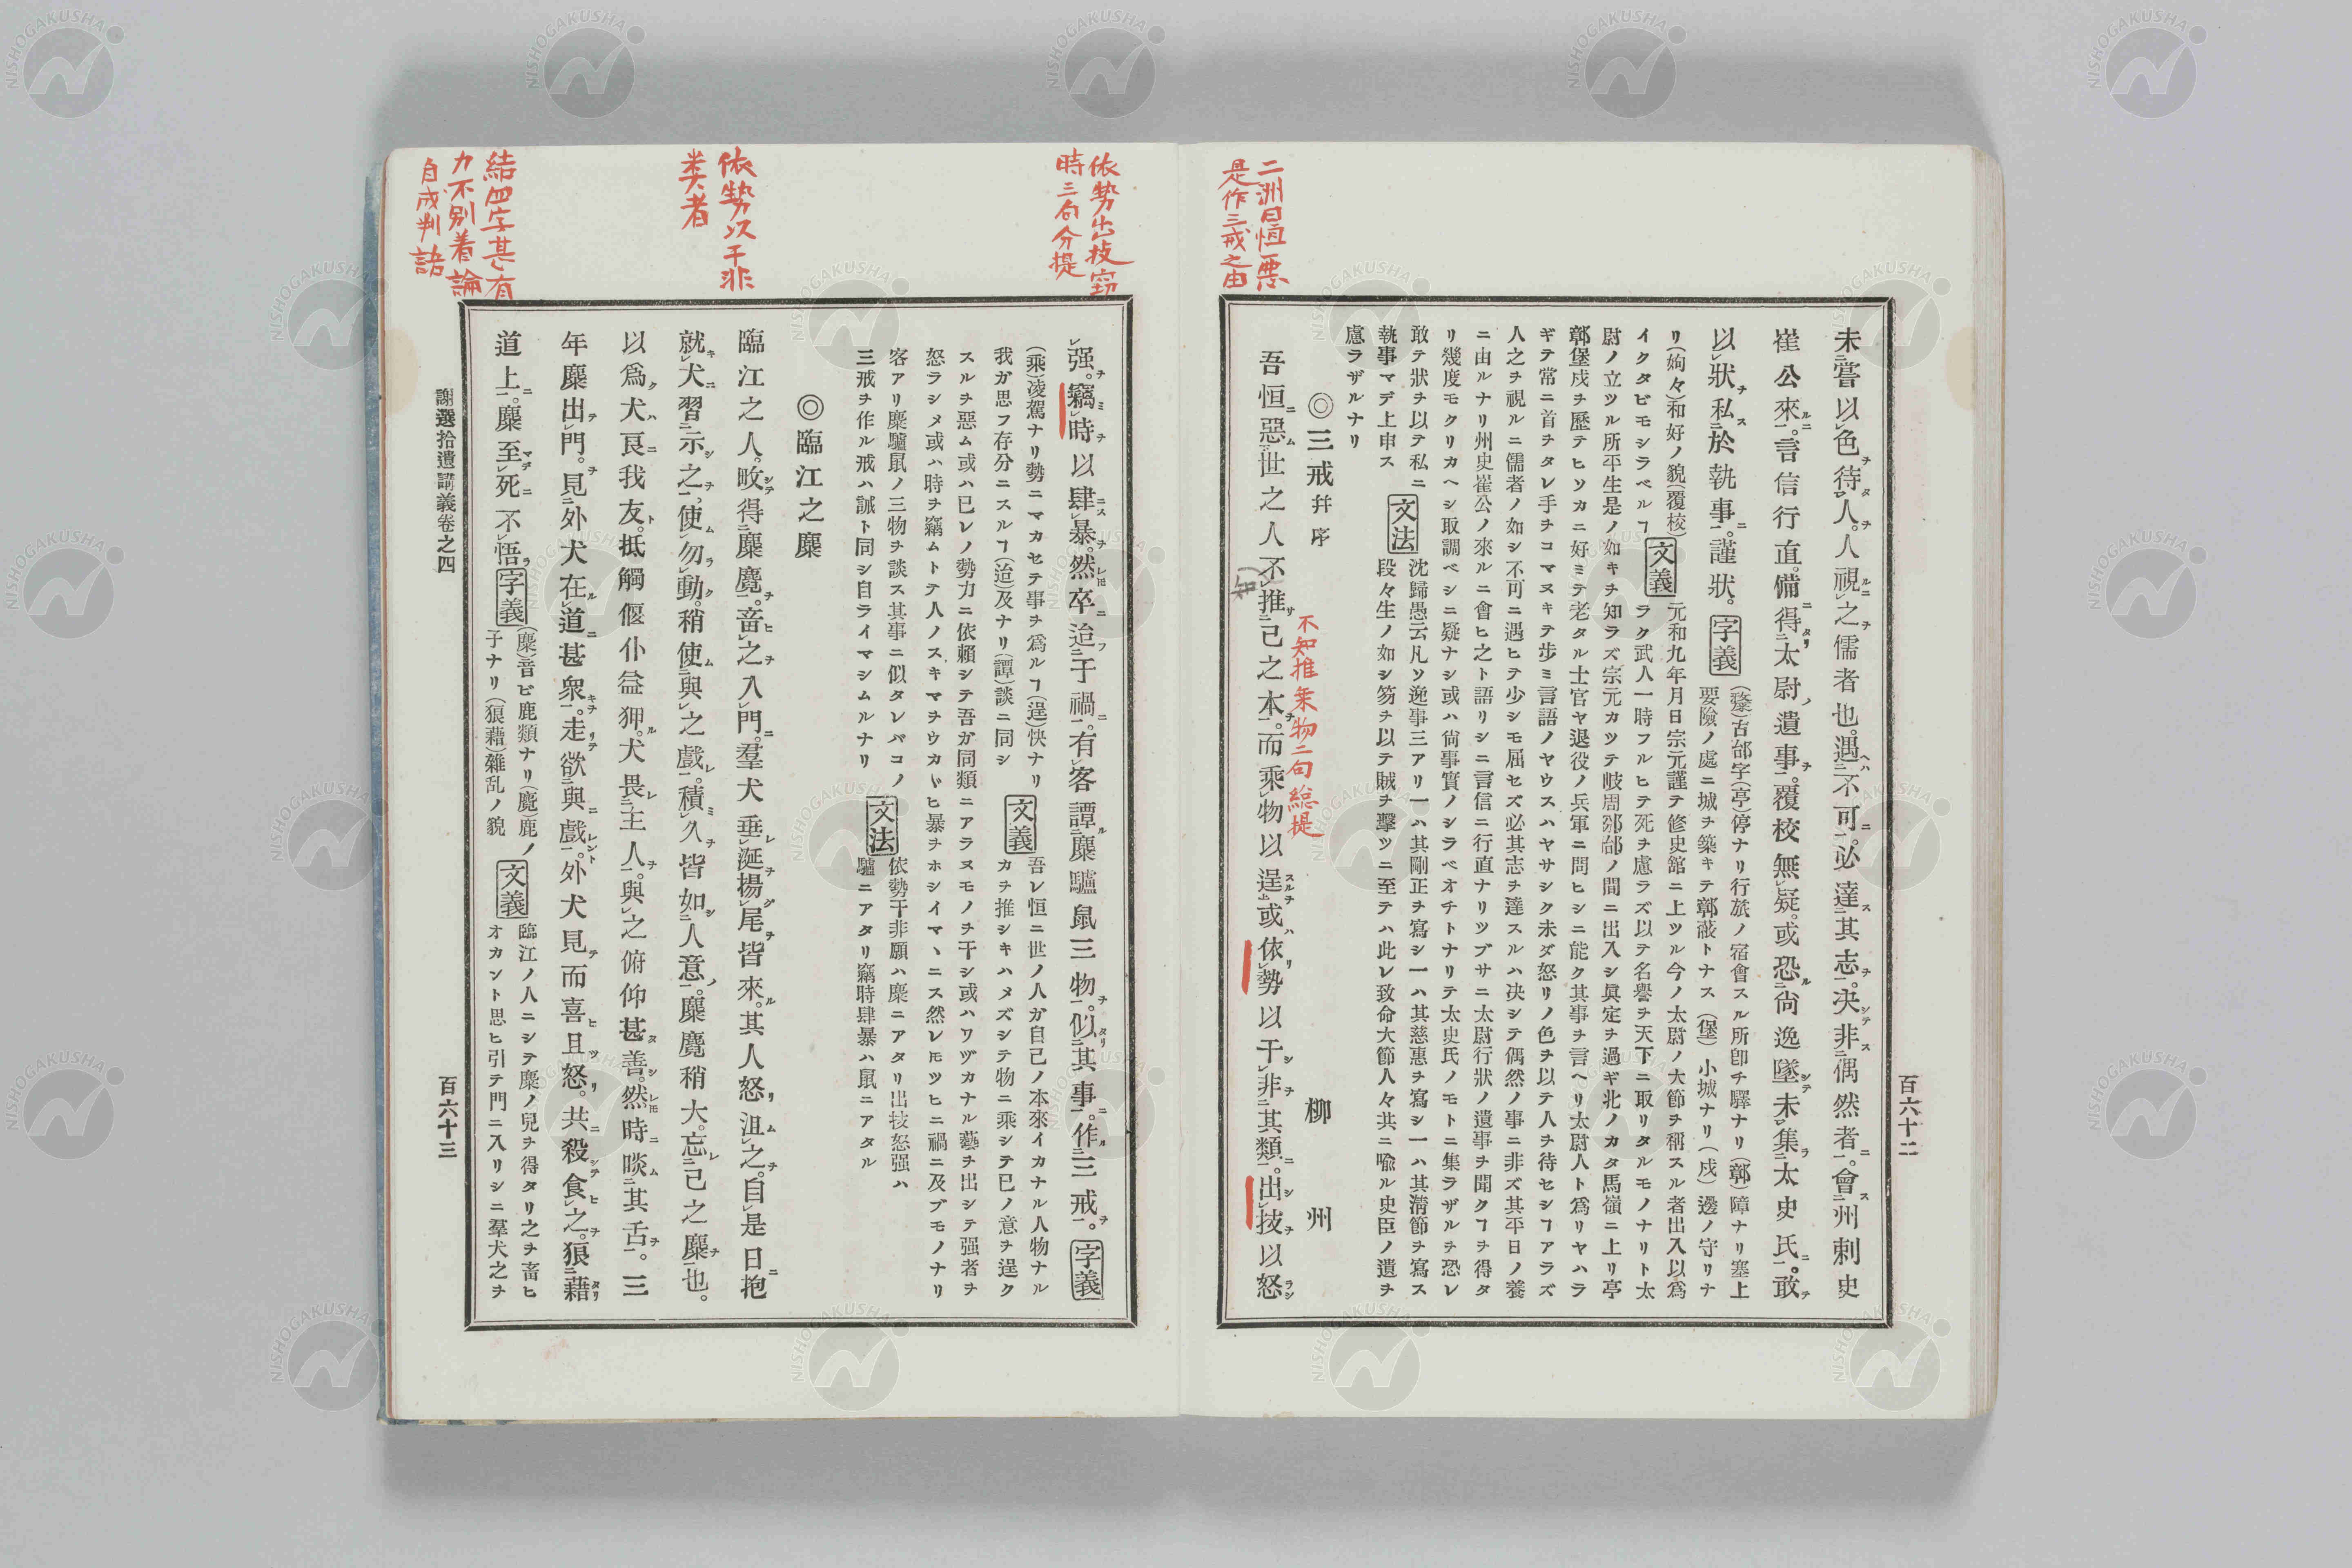 二洲曰恒惡
是作三戒之由
百六十二
未嘗以色待人。人視之儒者也。遇不可。必達其志。決非偶然者。會州刺史
崔公來。言信行直。備得太尉遺事。覆校無疑。或恐尙逸墜未集太史氏。敢
以狀私於執事。謹狀。字義
(斄)古邰字(亭)停ナリ行旅ノ宿會スル所卽チ驛ナリ(鄣)障ナリ塞上
要險ノ處ニ城ヲ築キテ鄣蔽トナス(堡)小城ナリ(戍)邊ノ守リナ
リ(姁々)和好ノ貌(覆校)
イクタビモシラベルヿ
文義
元和九年月日宗元謹テ修史舘ニ上ツル今ノ太尉ノ大節ヲ稱スル者出入以爲
ラク武人一時フルヒテ死ヲ慮ラズ以テ名譽ヲ天下ニ取リタルモノナリト太
尉ノ立ツル所平生是ノ如キヲ知ラズ宗元カツテ岐周邠邰ノ間ニ出入シ眞定ヲ過ギ北ノカタ馬嶺ニ上リ亭
鄣堡戍ヲ歷テヒソカニ好ミテ老タル士官ヤ退役ノ兵軍ニ問ヒシニ能ク其事ヲ言ヘリ太尉人ト爲リヤハラ
ギテ常ニ首ヲタレ手ヲコマヌキテ步ミ言語ノヤウスハヤサシク未ダ怒リノ色ヲ以テ人ヲ待セシヿアラズ
人之ヲ視ルニ儒者ノ如シ不可ニ遇ヒテ少シモ屈セズ必其志ヲ達スルハ决シテ偶然ノ事ニ非ズ其平日ノ養
ニ由ルナリ州史崔公ノ來ルニ會ヒ之ト語リシニ言信ニ行直ナリツブサニ太尉行狀ノ遺事ヲ聞クヿヲ得タ
リ幾度モクリカヘシ取調ベシニ疑ナシ或ハ尙事實ノシラベオチトナリテ太史氏ノモトニ集ラザルヲ恐レ
敢テ狀ヲ以テ私ニ
執事マデ上申ス
文法
沈歸愚云凡ソ逸事三アリ一ハ其剛正ヲ寫シ一ハ其慈惠ヲ寫シ一ハ其淸節ヲ寫ス
段々生ノ如シ笏ヲ以テ賊ヲ擊ツニ至テハ此レ致命大節人々共ニ喩ル史臣ノ遺ヲ
慮ラザルナリ
◎三戒 幷序 柳州
不知推乘物二句総提
吾恒惡世之人不推己之本。而乘物以逞。或依勢以干非其類。出技以怒
知
依勢出技窃
時三句分提
强。竊時以肆暴。然卒迨于禍。有客譚麋驢鼠三物。似其事。作三戒。字義
(乘)凌駕ナリ勢ニマカセテ事ヲ爲ルヿ(逞)快ナリ
我ガ思フ存分ニスルヿ(迨)及ナリ(譚)談ニ同シ
文義
吾レ恒ニ世ノ人ガ自己ノ本來イカナル人物ナル
カヲ推シキハメズシテ物ニ乘シテ已ノ意ヲ逞ク
スルヲ惡ム或ハ已レノ勢力ニ依賴シテ吾ガ同類ニアラヌモノヲ干シ或ハワヅカナル藝ヲ出シテ强者ヲ
怒ラシメ或ハ時ヲ竊ムトテ人ノスキマヲウカヾヒ暴ヲホシイマヽニス然レモツヒニ禍ニ及ブモノナリ
客アリ麋驢鼠ノ三物ヲ談ス其事ニ似タレバコノ
三戒ヲ作ル戒ハ誡ト同シ自ライマシムルナリ
文法
依勢干非願ハ麋ニアタリ出技怒强ハ
驢ニアタリ竊時肆暴ハ鼠ニアタル
◎臨江之麋
依勢以干非
类者
臨江之人。畋得麋麑。畜之入門。羣犬垂涎揚尾皆來。其人怒沮之。自是日抱
就犬習示之。使勿動。稍使與之戲。積久皆如人意。麋麑稍大。忘己之麋也。
以爲犬良我友。抵觸偃仆益狎。犬畏主人。與之俯仰甚善。然時啖其舌。三
年麋出門。見外犬在道甚衆。走欲與戲。外犬見而喜且怒。共殺食之。狼藉
道上。麋至死不悟。字義
(麋)音ビ鹿類ナリ(麑)鹿ノ
子ナリ(狼藉)雜乱ノ貌
文義
臨江ノ人ニシテ麋ノ兒ヲ得タリ之ヲ畜ヒ
オカント思ヒ引テ門ニ入リシニ羣犬之ヲ
結四字甚有
力不别着論
自成判語
謝選拾遺講義卷之四
百六十三